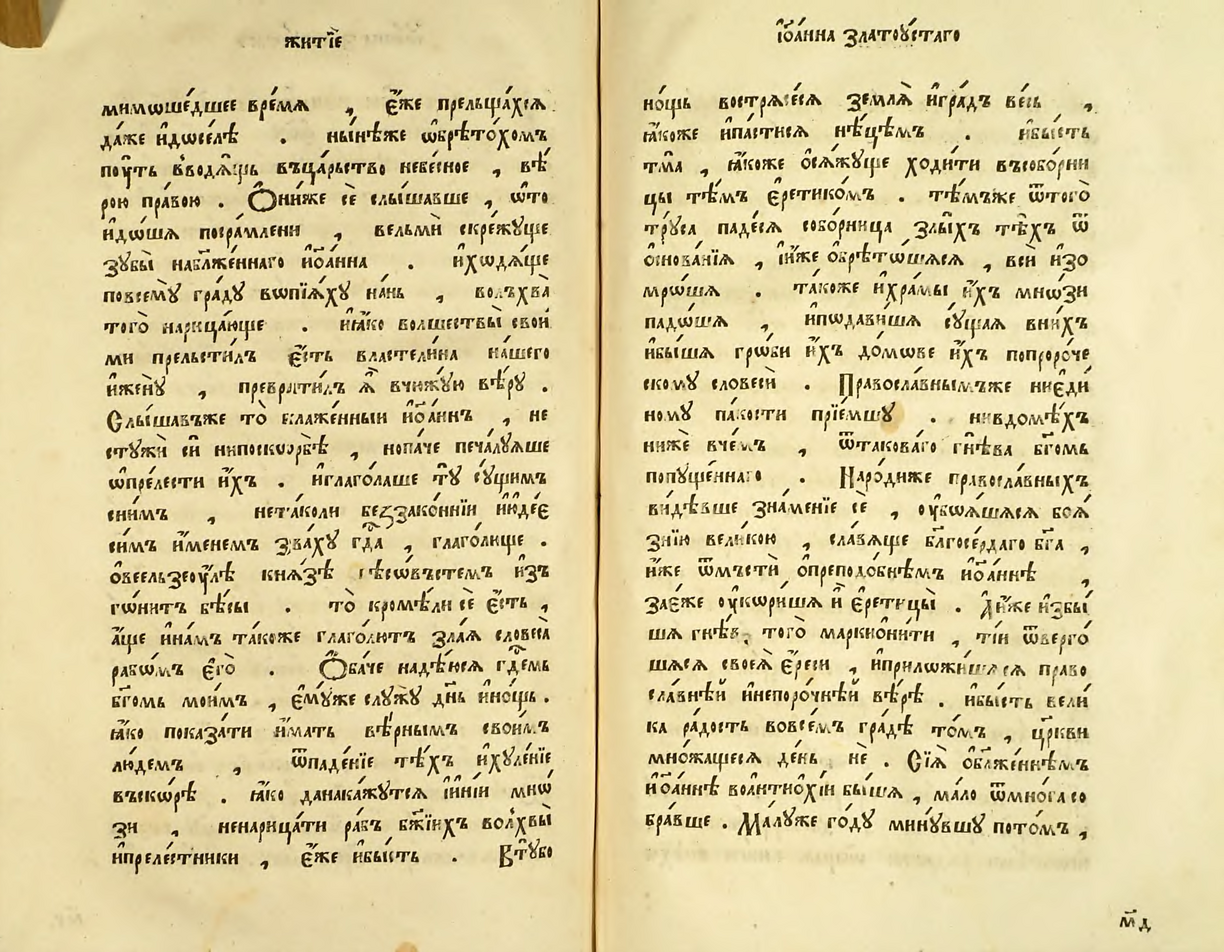 житїе
мимѡше́дшее вре́мѧ , є́же прельща́хсѧ
да́же идѡселѣ̀ . нын́ѣже ѡбрѣто́хомъ
пꙋ́ть вводѧ́щь въца́рьство небе́сное , вѣ́
рою пра́вою . Ѻни́же сѐ слы́шавше , ѿто
идо́шѧ посра́млени , вельмѝ скреж́ꙋще
зꙋбы̀ наблаже́ннаго иѡа́нна . ихѡдѧ́ще
повсемꙋ̀ гра́дꙋ вѡпїѧ́хꙋ на́нь , волъхва̀
того̀ нарица́юще . иꙗ́ко волшествы̀ свои́
ми прельсти́лъ є́сть властели́на на́шего
иженꙋ̀ , преврати́лъ ѧ̀ вчюжꙋ́ю вѣ́рꙋ .
Слы́шавъже то̀ блаже́нныи иѡа́ннъ , не
стꙋжѝ сѝ нипоско́рбѣ , нопа́че печа́лꙋѧше
ѡпре́лести и́хъ . иглаго́лаше тꙋ̀ сꙋ́щимъ
сни́мъ , нета́коли беззако́ннїи июде́є
си́мъ и́менемъ зва́хꙋ гдⷭ҇а , глаго́лище .
ѡвеельзеꙋ́лѣ кнѧ́зѣ бѣсѡ́въстемъ из̾
го́нитъ бѣ́сы . то̀ кромѣ́ли сѐ є́сть ,
а́ще ина́мъ та́коже глаго́лютъ зла́ѧ словеса̀
рабѡ́мъ єго̀ . Ѻба́че надѣ́юсѧ гдⷭ҇емь
бг҃омь мои́мъ , є́мꙋже слꙋжꙋ̀ дн҃ь ино́щь .
ꙗ́ко показа́ти и́мать вѣ́рнымъ свои́мъ
лю́демъ , ѿпаде́нїе тѣ́хъ ихꙋле́нїе
въско́рѣ . ꙗ́ко данака́жꙋтсѧ ині́и мнѡ́
зи , ненарица́ти ра́бъ бж҃їихъ волхвы̀
ипреле́стники , є́же ибы́сть . Втꙋ́бо
іѡа́нна златоꙋ́стаго
но́щь востръѧсе́сѧ землѧ̀ игра́дъ ве́сь ,
ꙗ́коже ипа́стисѧ нѣ́цѣмъ . ибы́сть
тма̀ , ꙗ́коже ѡсѧжꙋ́ще ходи́ти въсобо́рни
цы тѣ́мъ єретико́мъ . тѣ́мъже ѿтого̀
трꙋ́са паде́сѧ собо́рница злы́хъ тѣ́хъ ѿ
ѡснова́нїѧ , и́же ѡбрѣто́шасѧ , всѝ изо
мро́шѧ . та́коже ихра́мы и́хъ мно́зи
падо́шѧ , ипода́вишѧ сꙋ́щаѧ вни́хъ
ибы́шѧ гро́би и́хъ до́мове и́хъ попроро́че
скомꙋ словесѝ . Правосла́внымъже ниєди́
номꙋ па́кости прїе́мшꙋ . нивдомѣ́хъ
нижѐ вче́мъ , ѿтакова́го гнѣ́ва бг҃омь
попꙋще́ннаго . Наро́диже правосла́вныхъ
ви́дѣвше зна́менїе сѐ , ᲂу҆боѧ́шѧсѧ боѧ́
знїю вели́кою , сла́вѧще бл҃госе́рдаго бг҃а ,
и́же ѿмъстѝ ѡпреподо́бнѣмъ иѡа́ннѣ ,
заєже ᲂу҆кори́шѧ ѝ єретицы̀ . А и́же избы́
шѧ гнѣ́ва того̀ маркиѡни́ти , ті́и ѿверго́
шѧсѧ своеѧ̀ є́реси , иприложи́шѧсѧ право
сла́внѣй инепоро́чнѣй вѣ́рѣ . ибы́сть вели́
ка ра́дость вовсе́мъ гра́дѣ то́мъ , цр҃кви
мно́жащесѧ де́нь не . Сїѧ̀ ѡблаже́ннѣмъ
иѡа́ннѣ волнтио́хїи бы́шѧ , ма́ло ѿмно́га со
бра́вше . Ма́лꙋже го́дꙋ минꙋ́вшꙋ пото́мъ ,
м҃д